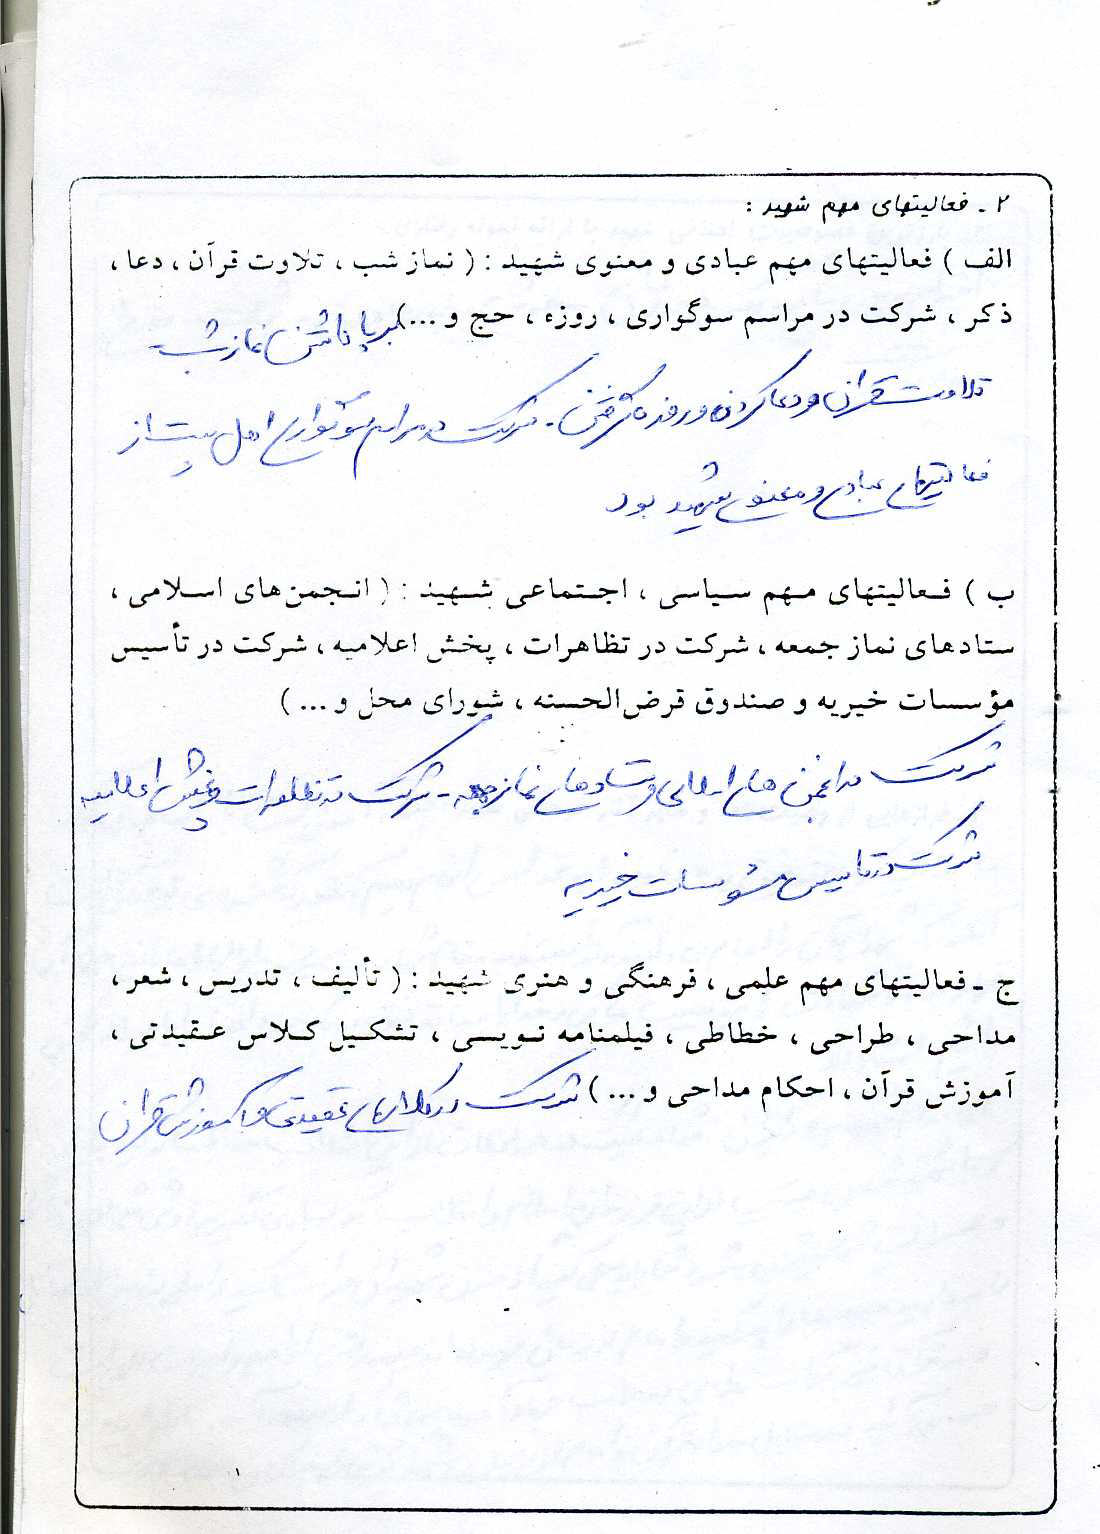 ۲ - فعالیتهای مهم شهید :
الف ) فعالیتهای مهم عبادی و معنوی شهید : ( نماز شب ، تلاوت قرآن ، دعا ،
ذکر ، شرکت در مراسم سوگواری ، روزه ، حج و ...) برپا داشتن نماز شب
تلاوت قرآن و دعا کردن و روزه گرفتن - شرکت در مراسم سوگواری اهل بیت از
فعالیتهای عبادی و معنوی شهید بود
ب ) فعالیتهای مهم سیاسی ، اجتماعی شهید : ( انجمن‌های اسلامی ،
ستادهای نماز جمعه ، شرکت در تظاهرات ، پخش اعلامیه ، شرکت در تأسیس
مؤسسات خیریه و صندوق قرض‌الحسنه ، شورای محل و ... )
شرکت در انجمن های اسلامی و ستادهای نماز جمعه - شرکت در تظاهرات و پخش اعلامیه
شرکت در تاسیس موسسات خیریه
ج - فعالیتهای مهم علمی ، فرهنگی و هنری شهید : ( تألیف ، تدریس ، شعر ،
مداحی ، طراحی ، خطاطی ، فیلمنامه نویسی ، تشکیل کلاس عقیدتی ،
آموزش قرآن ، احکام مداحی و ... ) شرکت در کلاسهای عقیدتی و آموزش قرآن